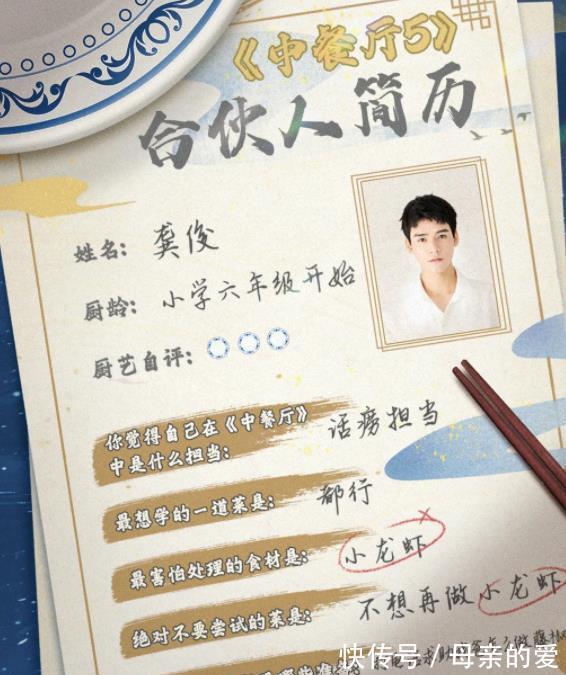 《中餐厅5》
合伙人简历
姓名: 龚俊
厨龄: 小学六年级开始
厨艺自评:
你觉得自己在《中餐厅》
中是什么担当: 话痨担当
最想学的一道菜是: 都行
最害怕处理的食材是: 小龙虾
绝对不要尝试的菜是: 不想再做小龙虾
快传号 / 母亲的爱